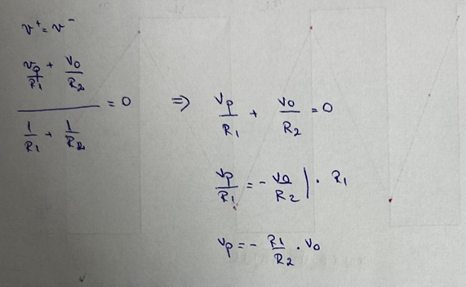 v⁺ = v⁻
(vp/R1 + vo/R2) / (1/R1 + 1/R2) = 0 ⇒ vp/R1 + vo/R2 = 0
vp/R1 = - vo/R2 | · R1
vp = - R1/R2 · vo